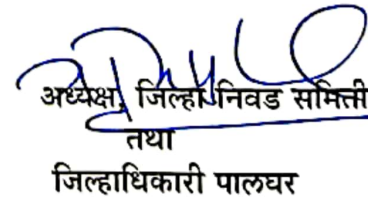 अध्यक्ष, जिल्हा निवड समिती
तथा
जिल्हाधिकारी पालघर